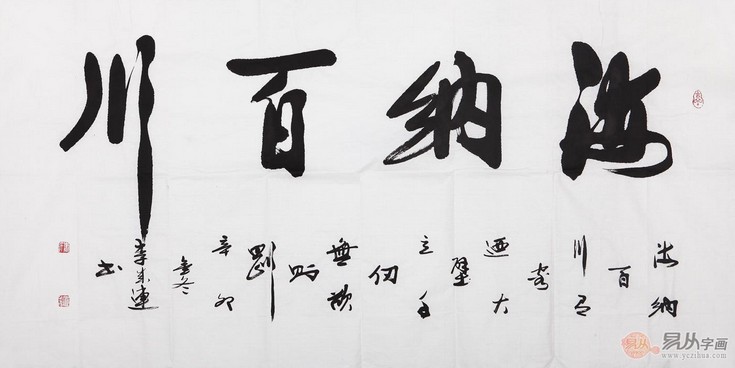 海纳百川
海纳
百
川有
容
迺大
壁
立千
仞
無欲
则
剛
辛卯
年冬
李成連
书
易从字画
www.yczihua.com